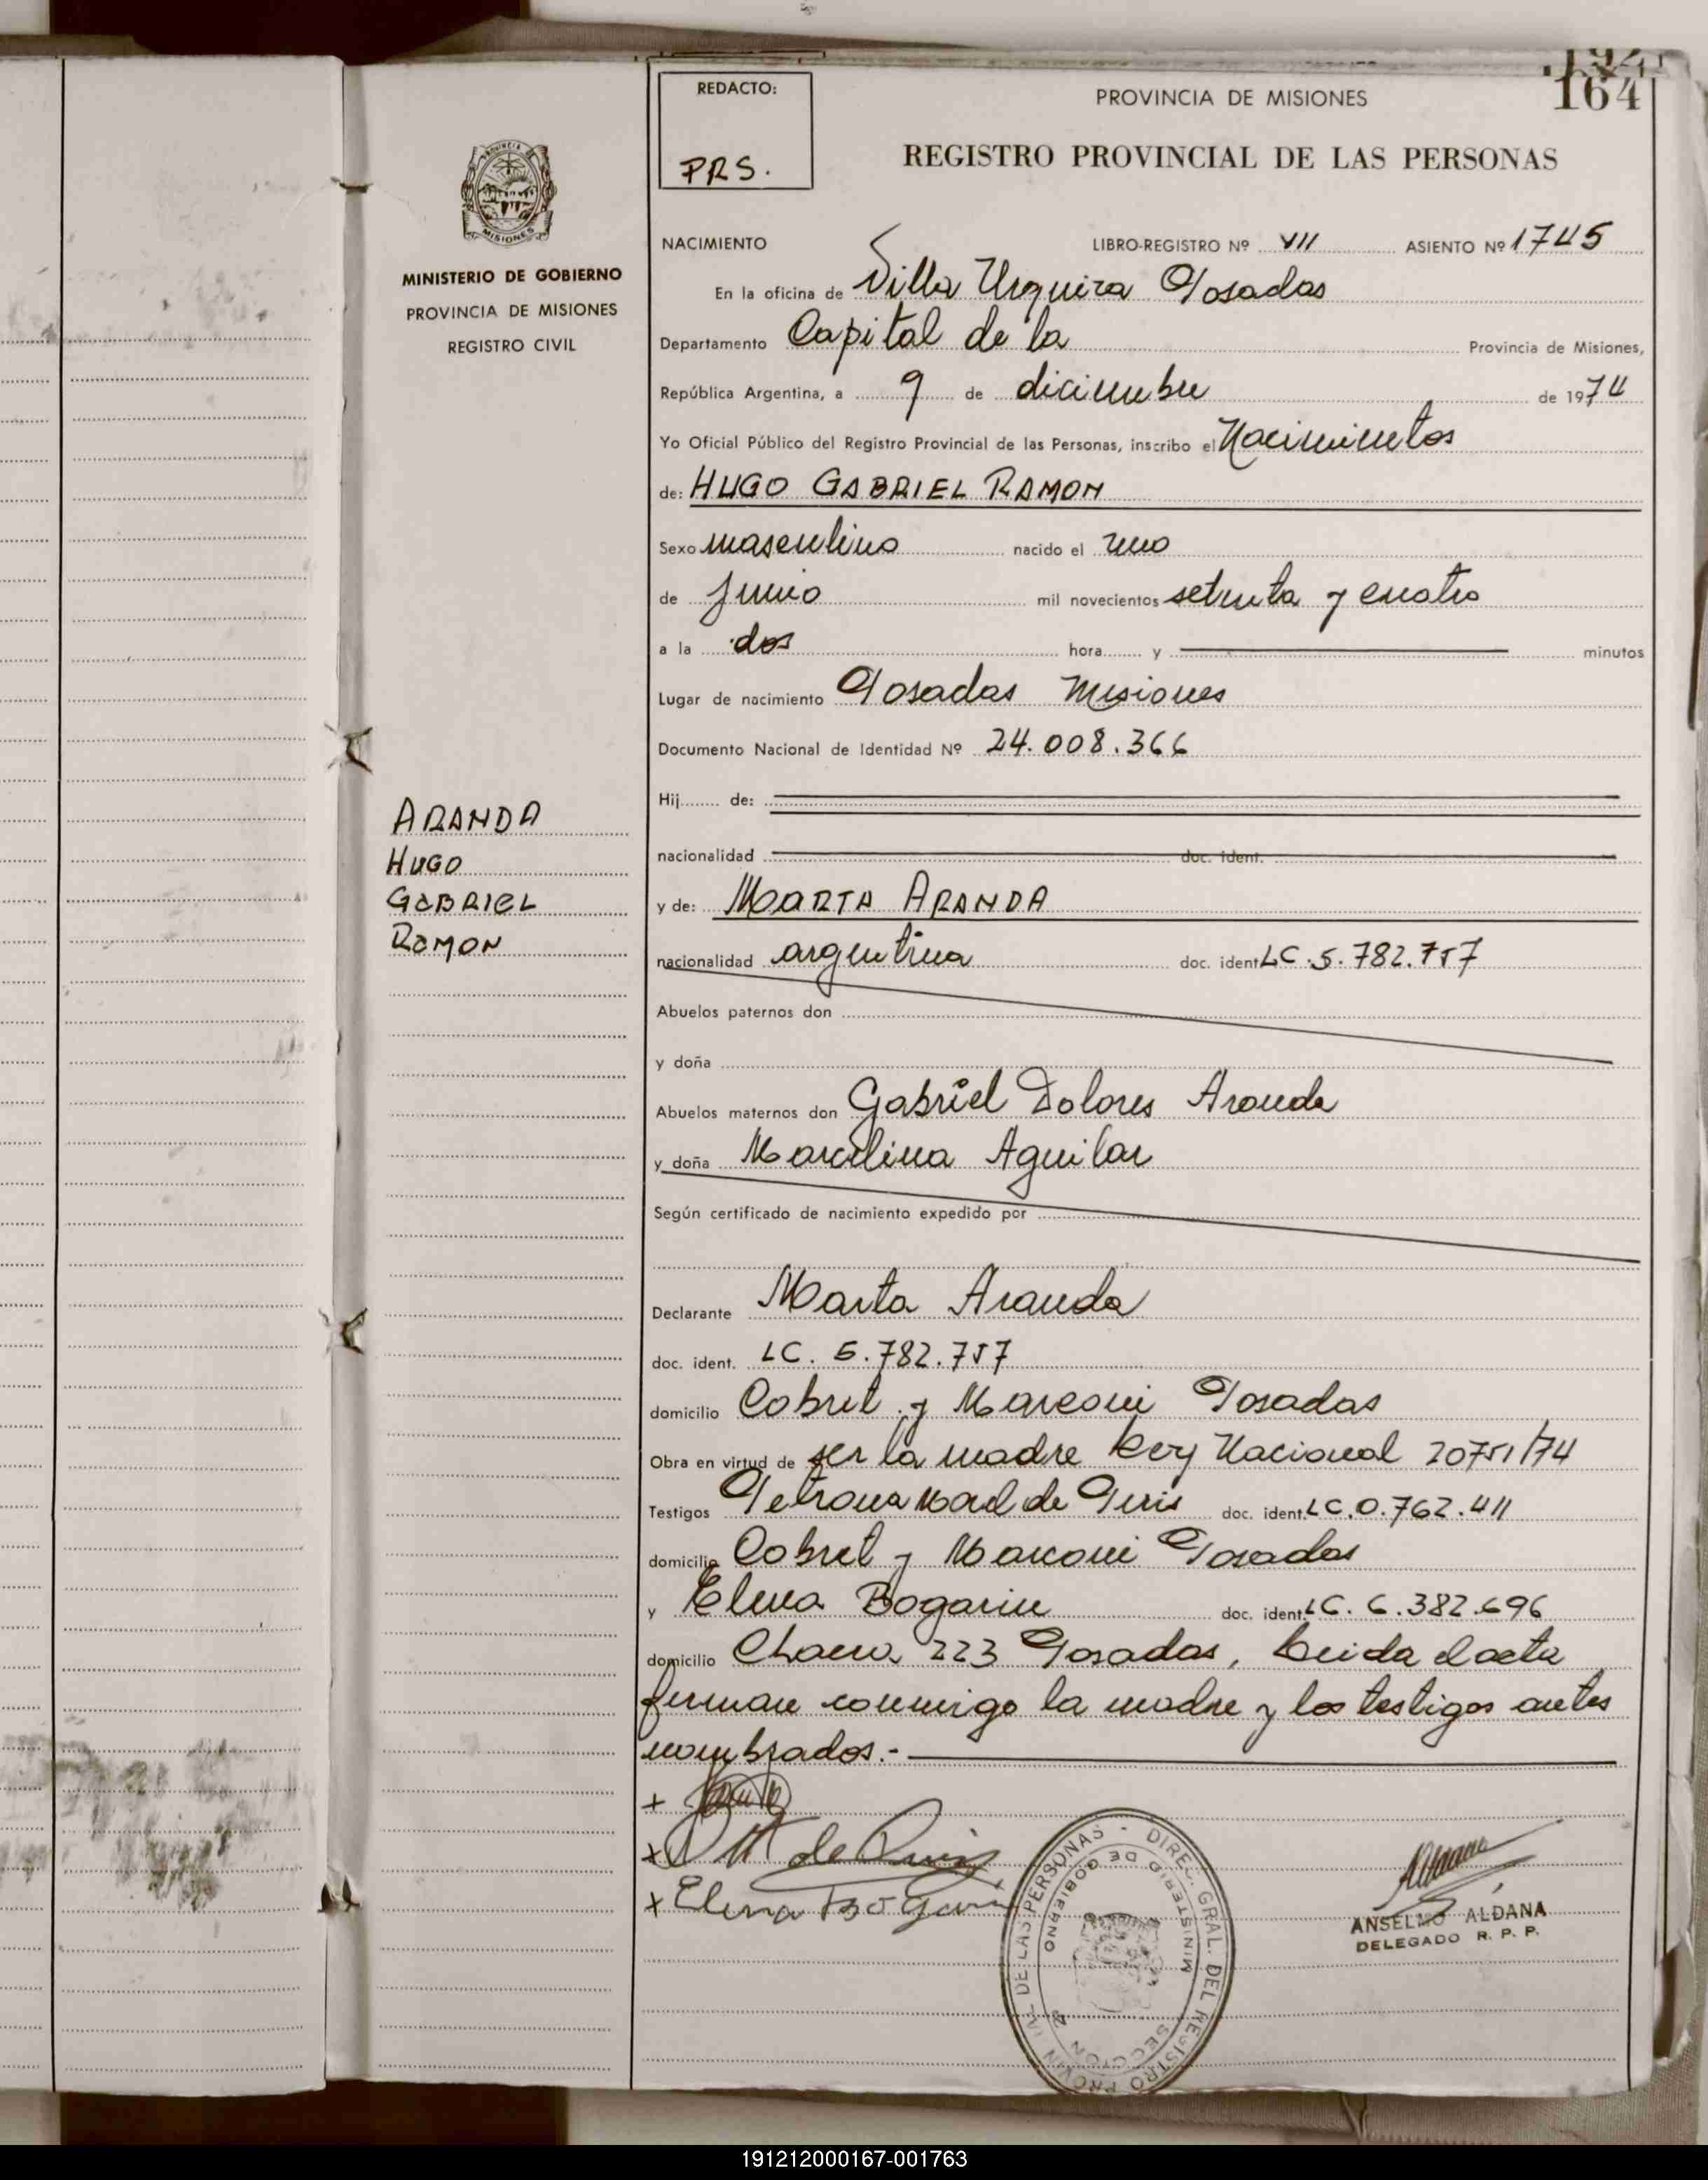 164
REDACTO:
PRS.
PROVINCIA DE MISIONES
REGISTRO PROVINCIAL DE LAS PERSONAS
MINISTERIO DE GOBIERNO
PROVINCIA DE MISIONES
REGISTRO CIVIL
ARANDA
HUGO
GABRIEL
RAMON
NACIMIENTO LIBRO-REGISTRO Nº VII ASIENTO Nº 1745
En la oficina de Villa Urquiza Posadas
Departamento Capital de la Provincia de Misiones,
República Argentina, a 9 de diciembre de 1974
Yo Oficial Público del Registro Provincial de las Personas, inscribo el Nacimientos
de: HUGO GABRIEL RAMON
Sexo masculino nacido el uno
de Junio mil novecientos setenta y cuatro
a la dos hora y minutos
Lugar de nacimiento Posadas Misiones
Documento Nacional de Identidad Nº 24.008.366
Hij de:
nacionalidad doc. ident.
y de: MARTA ARANDA
nacionalidad argentina doc. ident LC.5.782.757
Abuelos paternos don
y doña
Abuelos maternos don Gabriel Dolores Aranda
y doña Marcelina Aguilar
Según certificado de nacimiento expedido por
Declarante Marta Aranda
doc. ident. LC. 5.782.757
domicilio Cobret y Marconi Posadas
Obra en virtud de ser la madre Ley Nacional 20751/74
Testigos Petrona de doc. ident. LC.0.762.411
domicilio Cobret y Marconi Posadas
y Elena Bogarin doc. ident. LC. 6.382.696
domicilio Chaco 223 Posadas, Leida el acta
firman conmigo la madre y los testigos antes
nombrados.-
+
+ de
+ Elena Bogarin
DIREC. GRAL. DEL REGISTRO PROVINCIAL DE LAS PERSONAS
MINISTERIO DE GOBIERNO
SECCION
ANSELMO ALDANA
DELEGADO R. P. P.
191212000167-001763